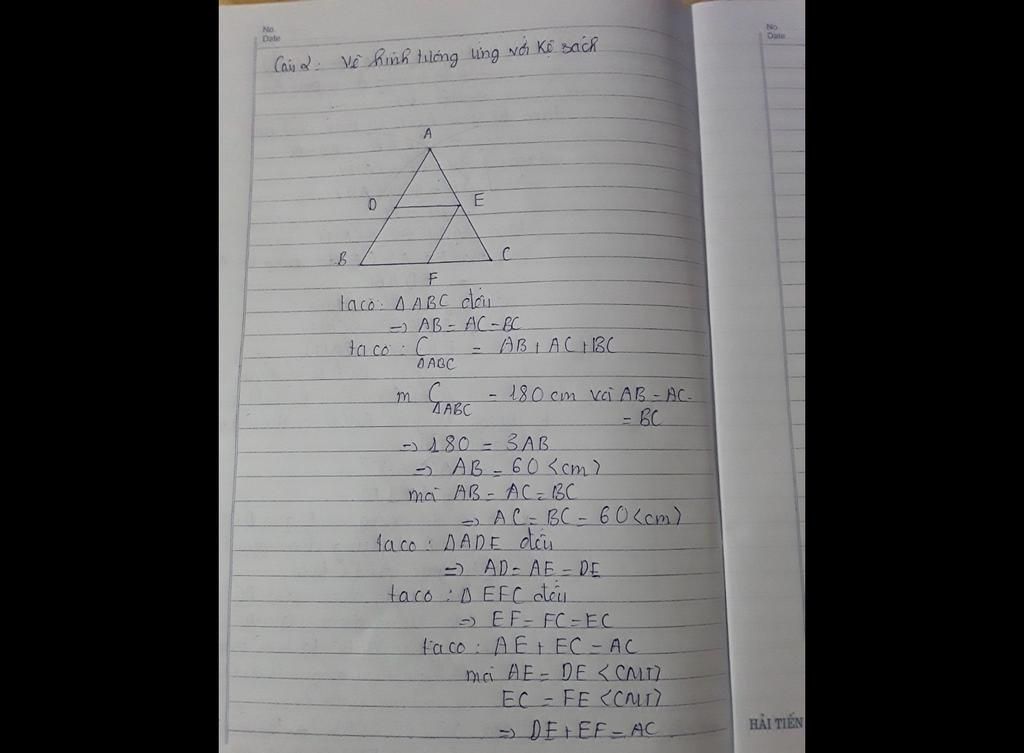 No.
Date
No.
Date
Câu 2: Vẽ hình tương ứng với kệ sách
A
D
E
B
C
F
ta có: ΔABC đều
=> AB = AC = BC
ta có: C ΔABC = AB + AC + BC
m C ΔABC = 180 cm với AB = AC
= BC
=> 180 = 3AB
=> AB = 60 <cm>
mà AB = AC = BC
=> AC = BC = 60 <cm>
ta có: ΔADE đều
=> AD = AE = DE
ta có: Δ EFC đều
=> EF = FC = EC
ta có: AE + EC = AC
mà AE = DE <CMT>
EC = FE <CMT>
=> DE + EF = AC
HẢI TIẾN